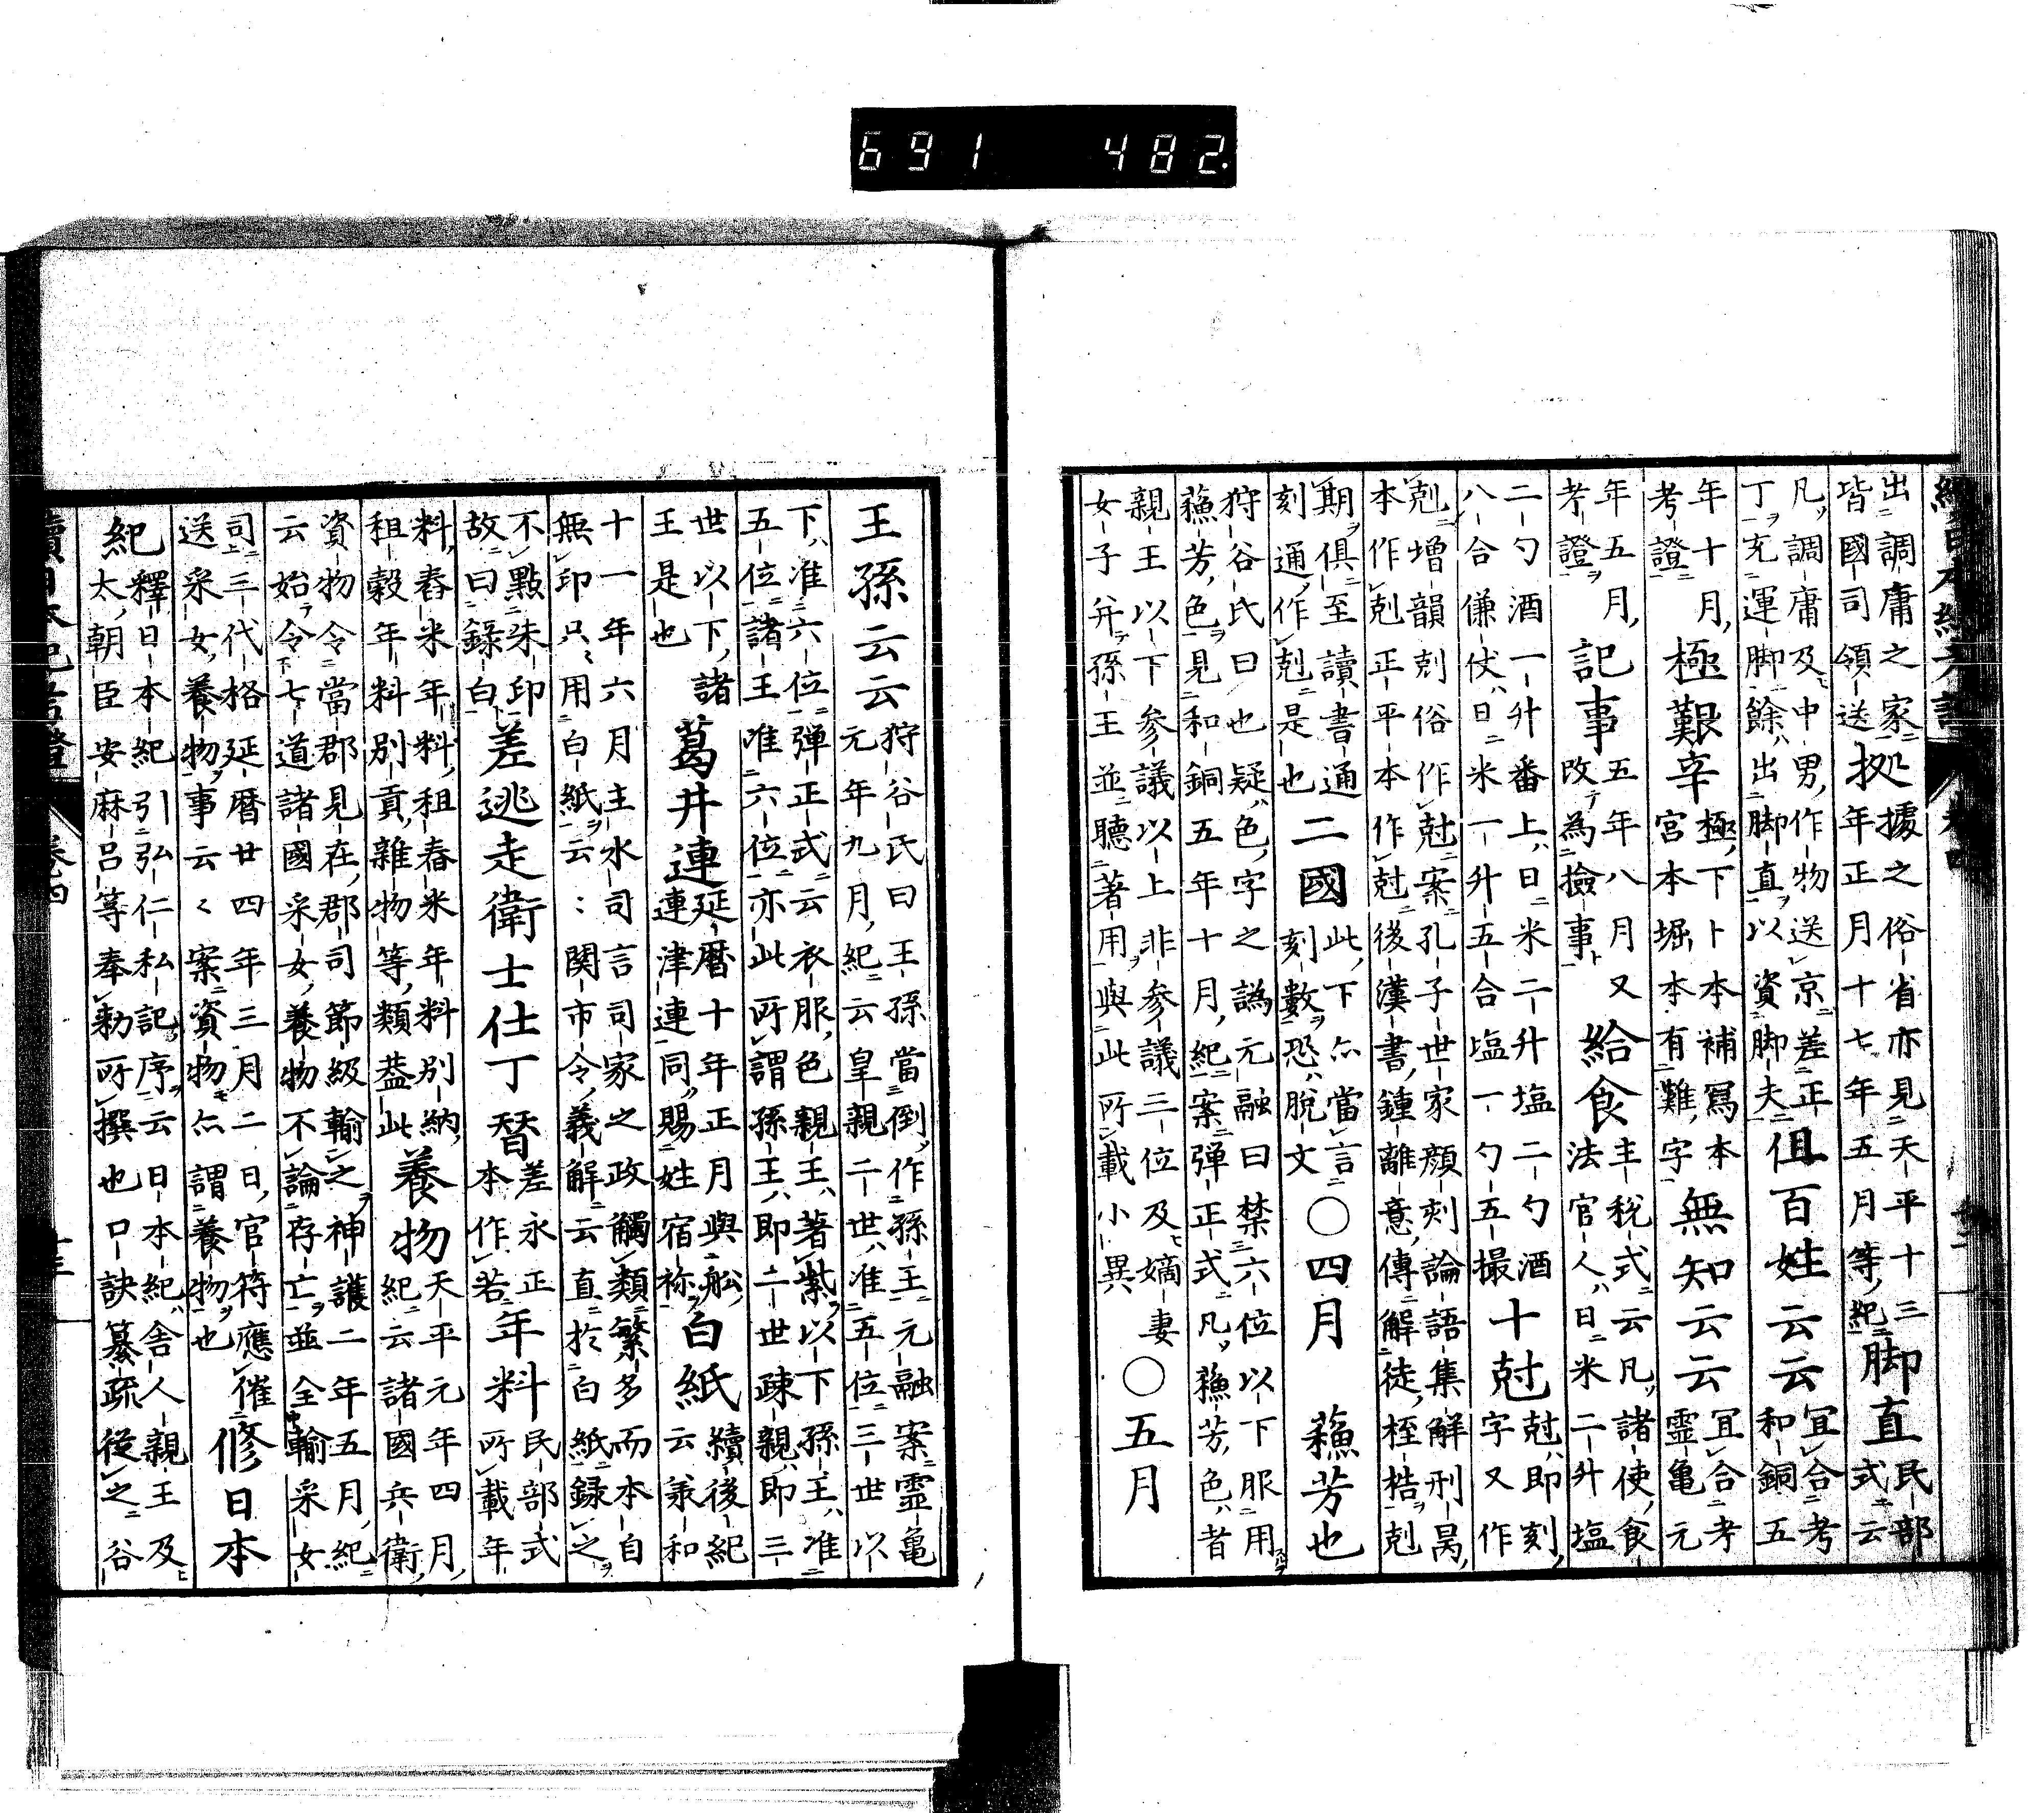 691 482
出調庸之家
皆國司領送
拠
據之俗省亦見天平十三
年正月十七年五月等紀
脚直
民部
式云
凡調庸及中男作物送京差正
丁充運脚餘出脚直以資脚夫
但百姓云云
冝合考
和銅五
年十月
考證
極艱辛
極下卜本補寫本
宮本堀本有難字
無知云云
冝合考
靈亀元
年五月
考證
記事
五年八月又
改為撿事
給食
主税式云凡諸使食
法官人日米二升塩
二勺酒一升番上日米二升塩二勺酒
八合傔仗日米一升五合塩一勺五撮
十尅
尅即刻
字又作
剋増韻剋俗作尅案孔子世家顔刻論語集解刑昺
本作剋正平本作尅後漢書鍾離意傳解徒桎梏剋
期俱至讀書通
刻通作剋是也
二國
此下亽當言
刻數恐脱文
〇四月
蘓芳也
狩谷氏曰也疑色字之譌元融曰禁六位以下服用
蘓芳色見和銅五年十月紀案弾正式凡蘓芳色者
親王以下参議以上非参議三位及嫡妻
女子并孫王並聴著用與此所載小異
〇五月
王孫云云
狩谷氏曰王孫當倒作孫王元融案霊亀
元年九月紀云皇親二世准五位三世以
下准六位弾正式云衣服色親王著紫以下孫王准
五位諸王准六位亦此所謂孫王即二世疎親即三
世以下諸
王是也
葛井連
延暦十年正月與舩
連津連同賜姓宿祢
白紙
續後紀
云承和
十一年六月主水司言司家之政觸類繁多而本自
無印只用白紙云云関市令義解云直於白紙録之
不點朱印
故曰録白
差逃走衛士仕丁替
差永正
本作若
年料
民部式
所載年
料舂米年料租舂米年料別納
租穀年料別貢雜物等類葢此
養物
天平元年四月
紀云諸國兵衛
資物令當郡見在郡司節級輸之神護二年五月紀
云始令七道諸國采女養物不論存亡並全輸采女
司三代格延暦廿四年三月二日官符應催
送采女養物事云云案資物亽謂養物也
修日本
紀
釋日本紀引弘仁私記序云日本紀舎人親王及
太朝臣安麻呂等奉勅所撰也口訣纂疏従之谷